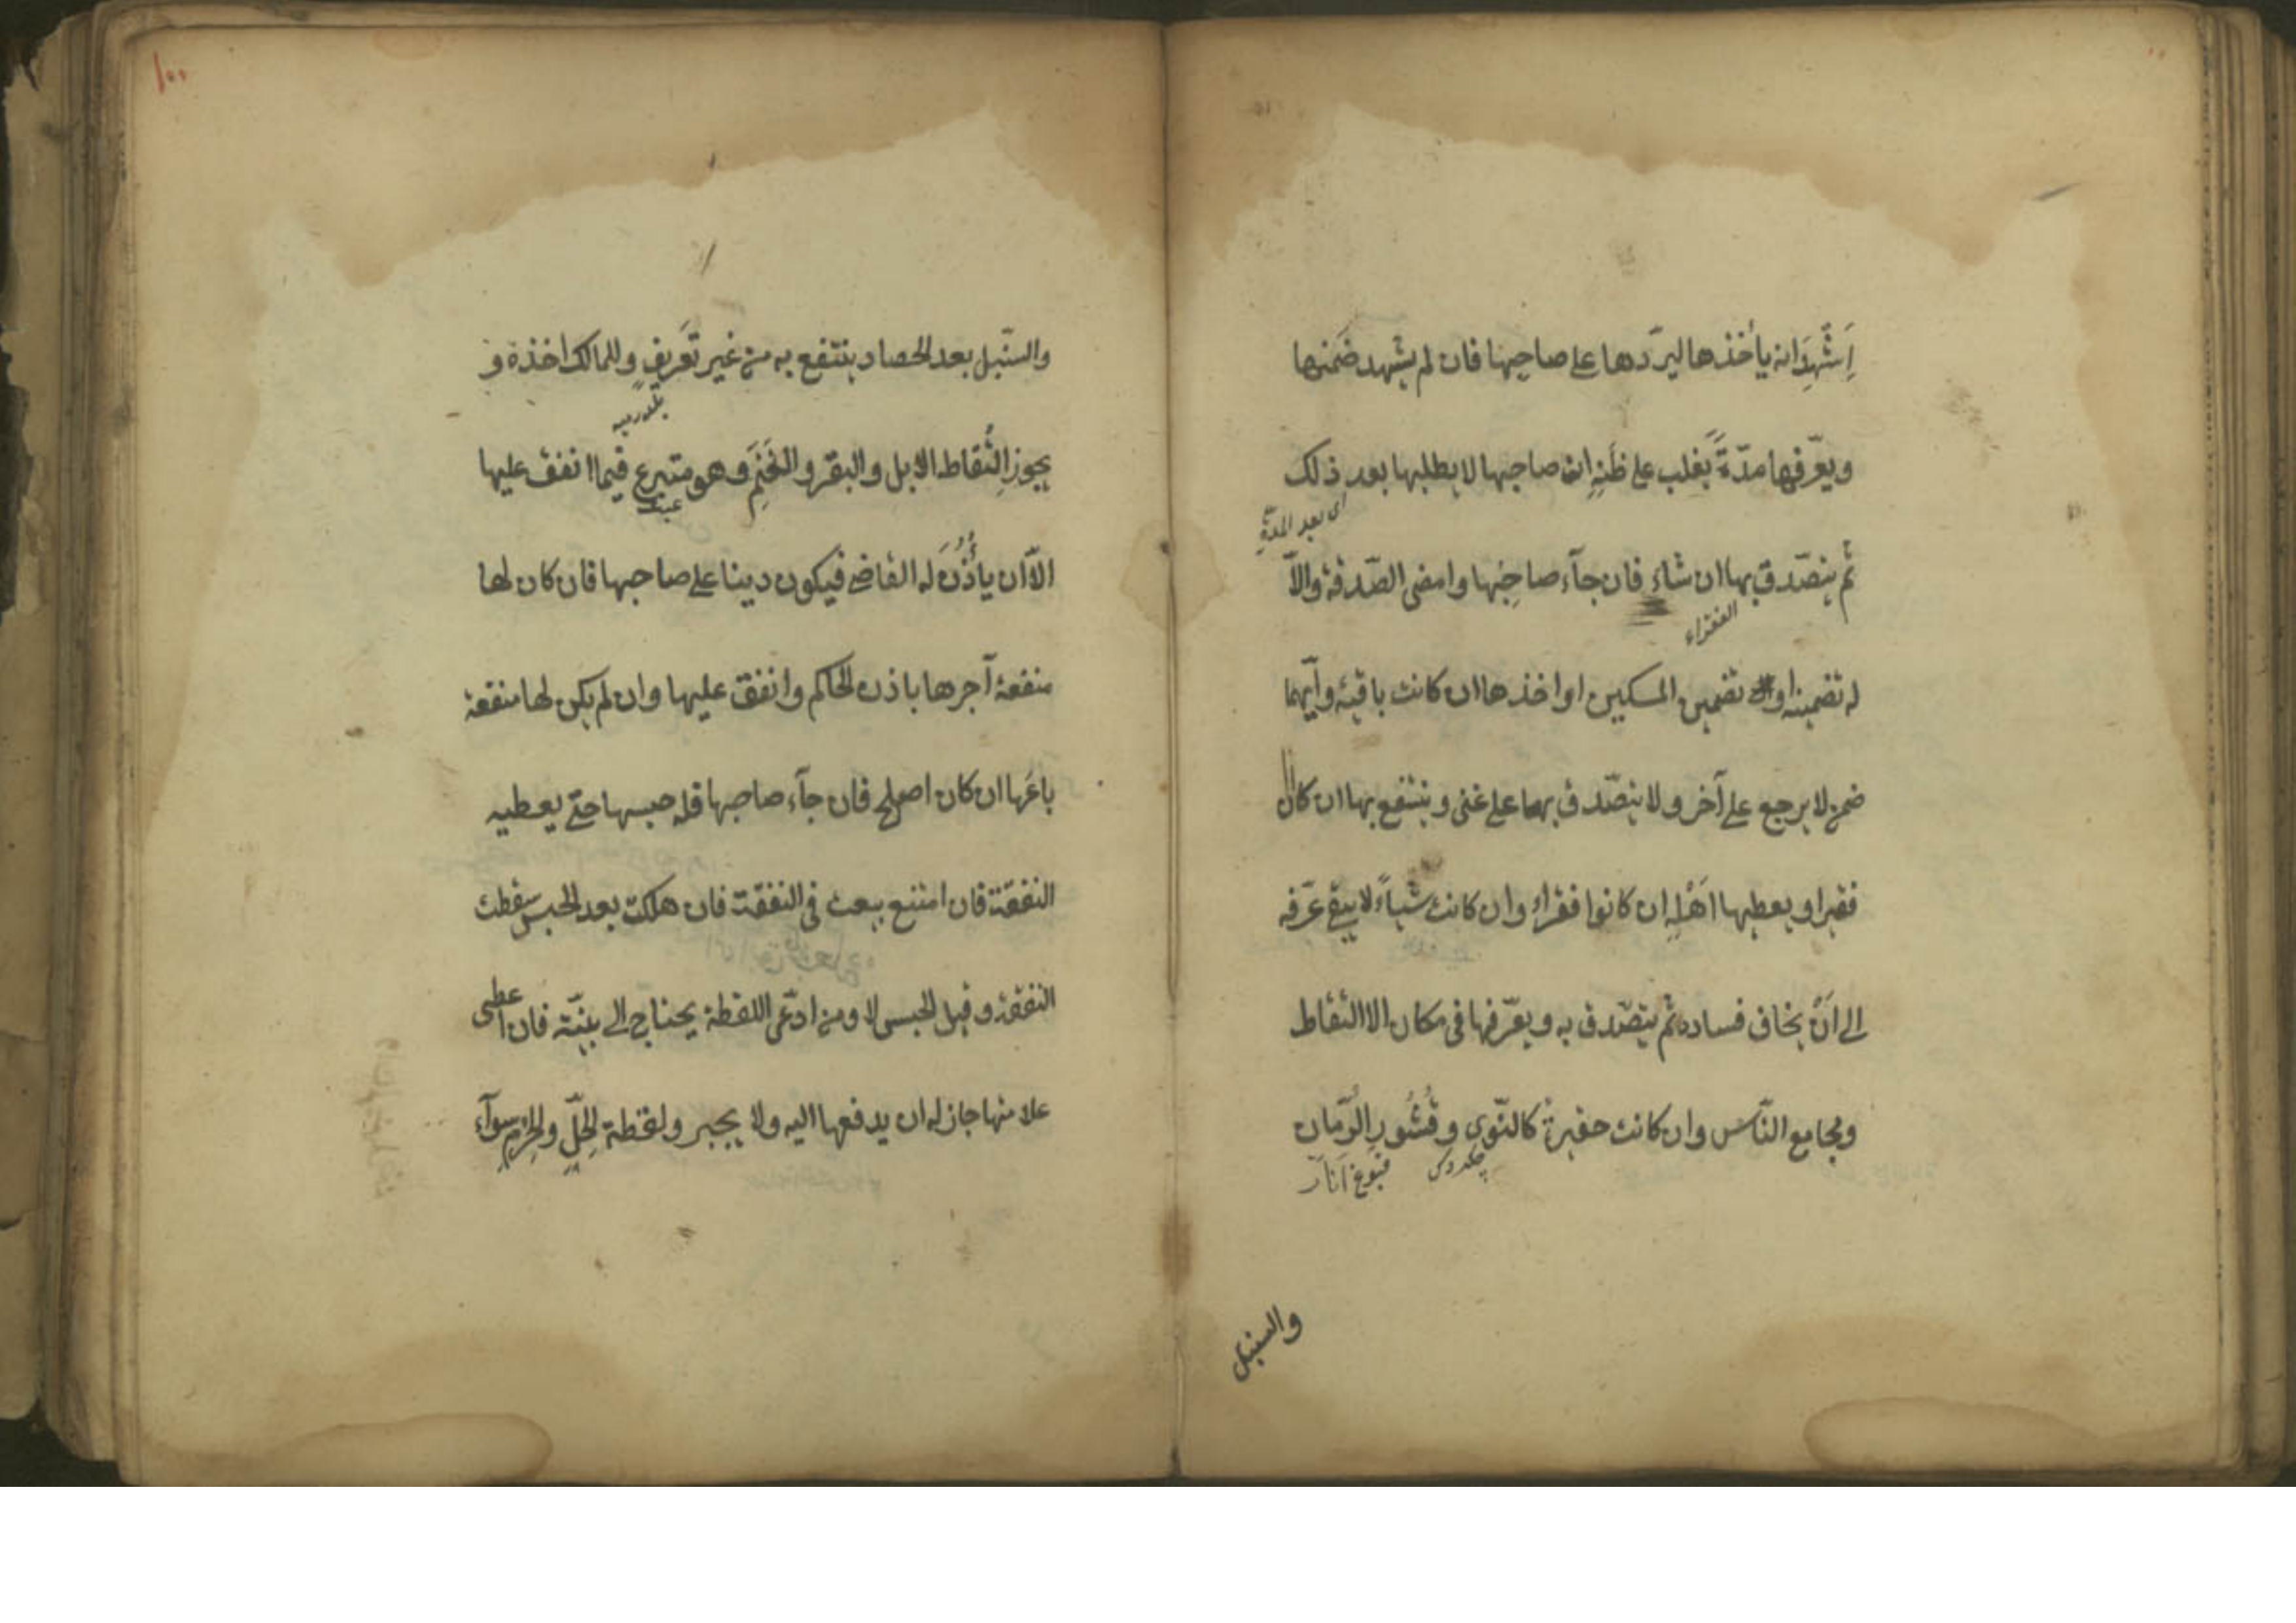 اَشْهَدَ انه يأخذها ليرّدها على صاحبها فان لم يشهد ضَمنها
ويعّرفها مدّةً يغلب على ظَنِهِ ان صاحبها لا يطلبها بعد ذلك
اى بعد المدة
ثم يتصّدق بها ان شاء فان جآء صاحِبُها وامضى الصّدقة والاّ
الفقراء
له تضمينه او تضمين المسكين او اخذها ان كانت باقية وايّهما
ضمن لا يرجع على آخر ولا يتصّدق بها على غنى وينتفع بها ان كان
فقيرا ويعطيها اَهْلِهِ ان كانوا فقراء وان كانت شياءً لا يبقى عَرّفه
الى اَنْ يخاف فساده ثم يتصّدق به ويعّرفها فى مكان الالتقاط
ومجامع النّاس وان كانت حقيرة كالنّوى وقُشُورِ الرّمان
چكردكى
انار
والسنبل
١٠٠
والسنّبل بعد الحصاد ينتفع به من غير تَعريفٍ وللمالك اخذه و
يجوز اِلْتُقاط الابل والبقر والغَنَمِ وهو متبرع فيما انفق عليها
الاّ ان يأذُنَ له القاضى فيكون دينا على صاحبها فان كان لها
منفعة آجرها باذن الحاكم وانفق عليها وان لم يكن لها منفعة
باعَها ان كان اصلح فان جآء صاحبها فله حبسها حتى يعطيه
النفقة فان امتنع بيعت فى النفقة فان هلكت بعد الحبس سقطت
النفقة وقبل الحبس لا ومن ادّعى اللقطة يحتاج الى بيّنة فان اعطى
علامتها جاز له ان يدفعها اليه ولا يجبر ولقطة الحِلّ والحرم سوآء